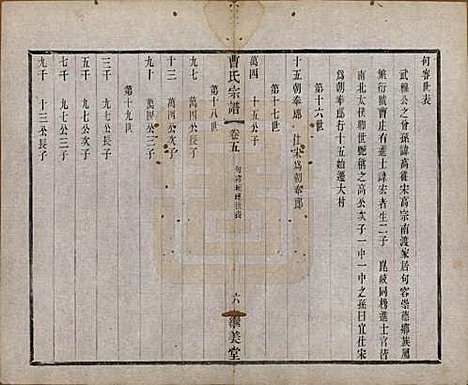 句容世表
武雅公之曾孫諱高從宋高宗南渡家居句容崇德鄉族屬
繁衍號曹庄有進士諱宏者生二子
崑岐同榜進士官蒞
南北大僕聯世艷稱之高公次子一中一中之孫曰宜仕宋
為朝奉郎行十五始遷大村
第十六世
十五朝奉郎 仕宋為朝奉郎
第十七世
萬四 十五公子
曹氏宗譜 卷五
六 樂美堂
第十八世
九七 萬四公長子
十三 萬四公次子
九十 萬四公三子
第十九世
三千 九七公長子
五千 九七公次子
七千 九七公三子
九千 十三公長子